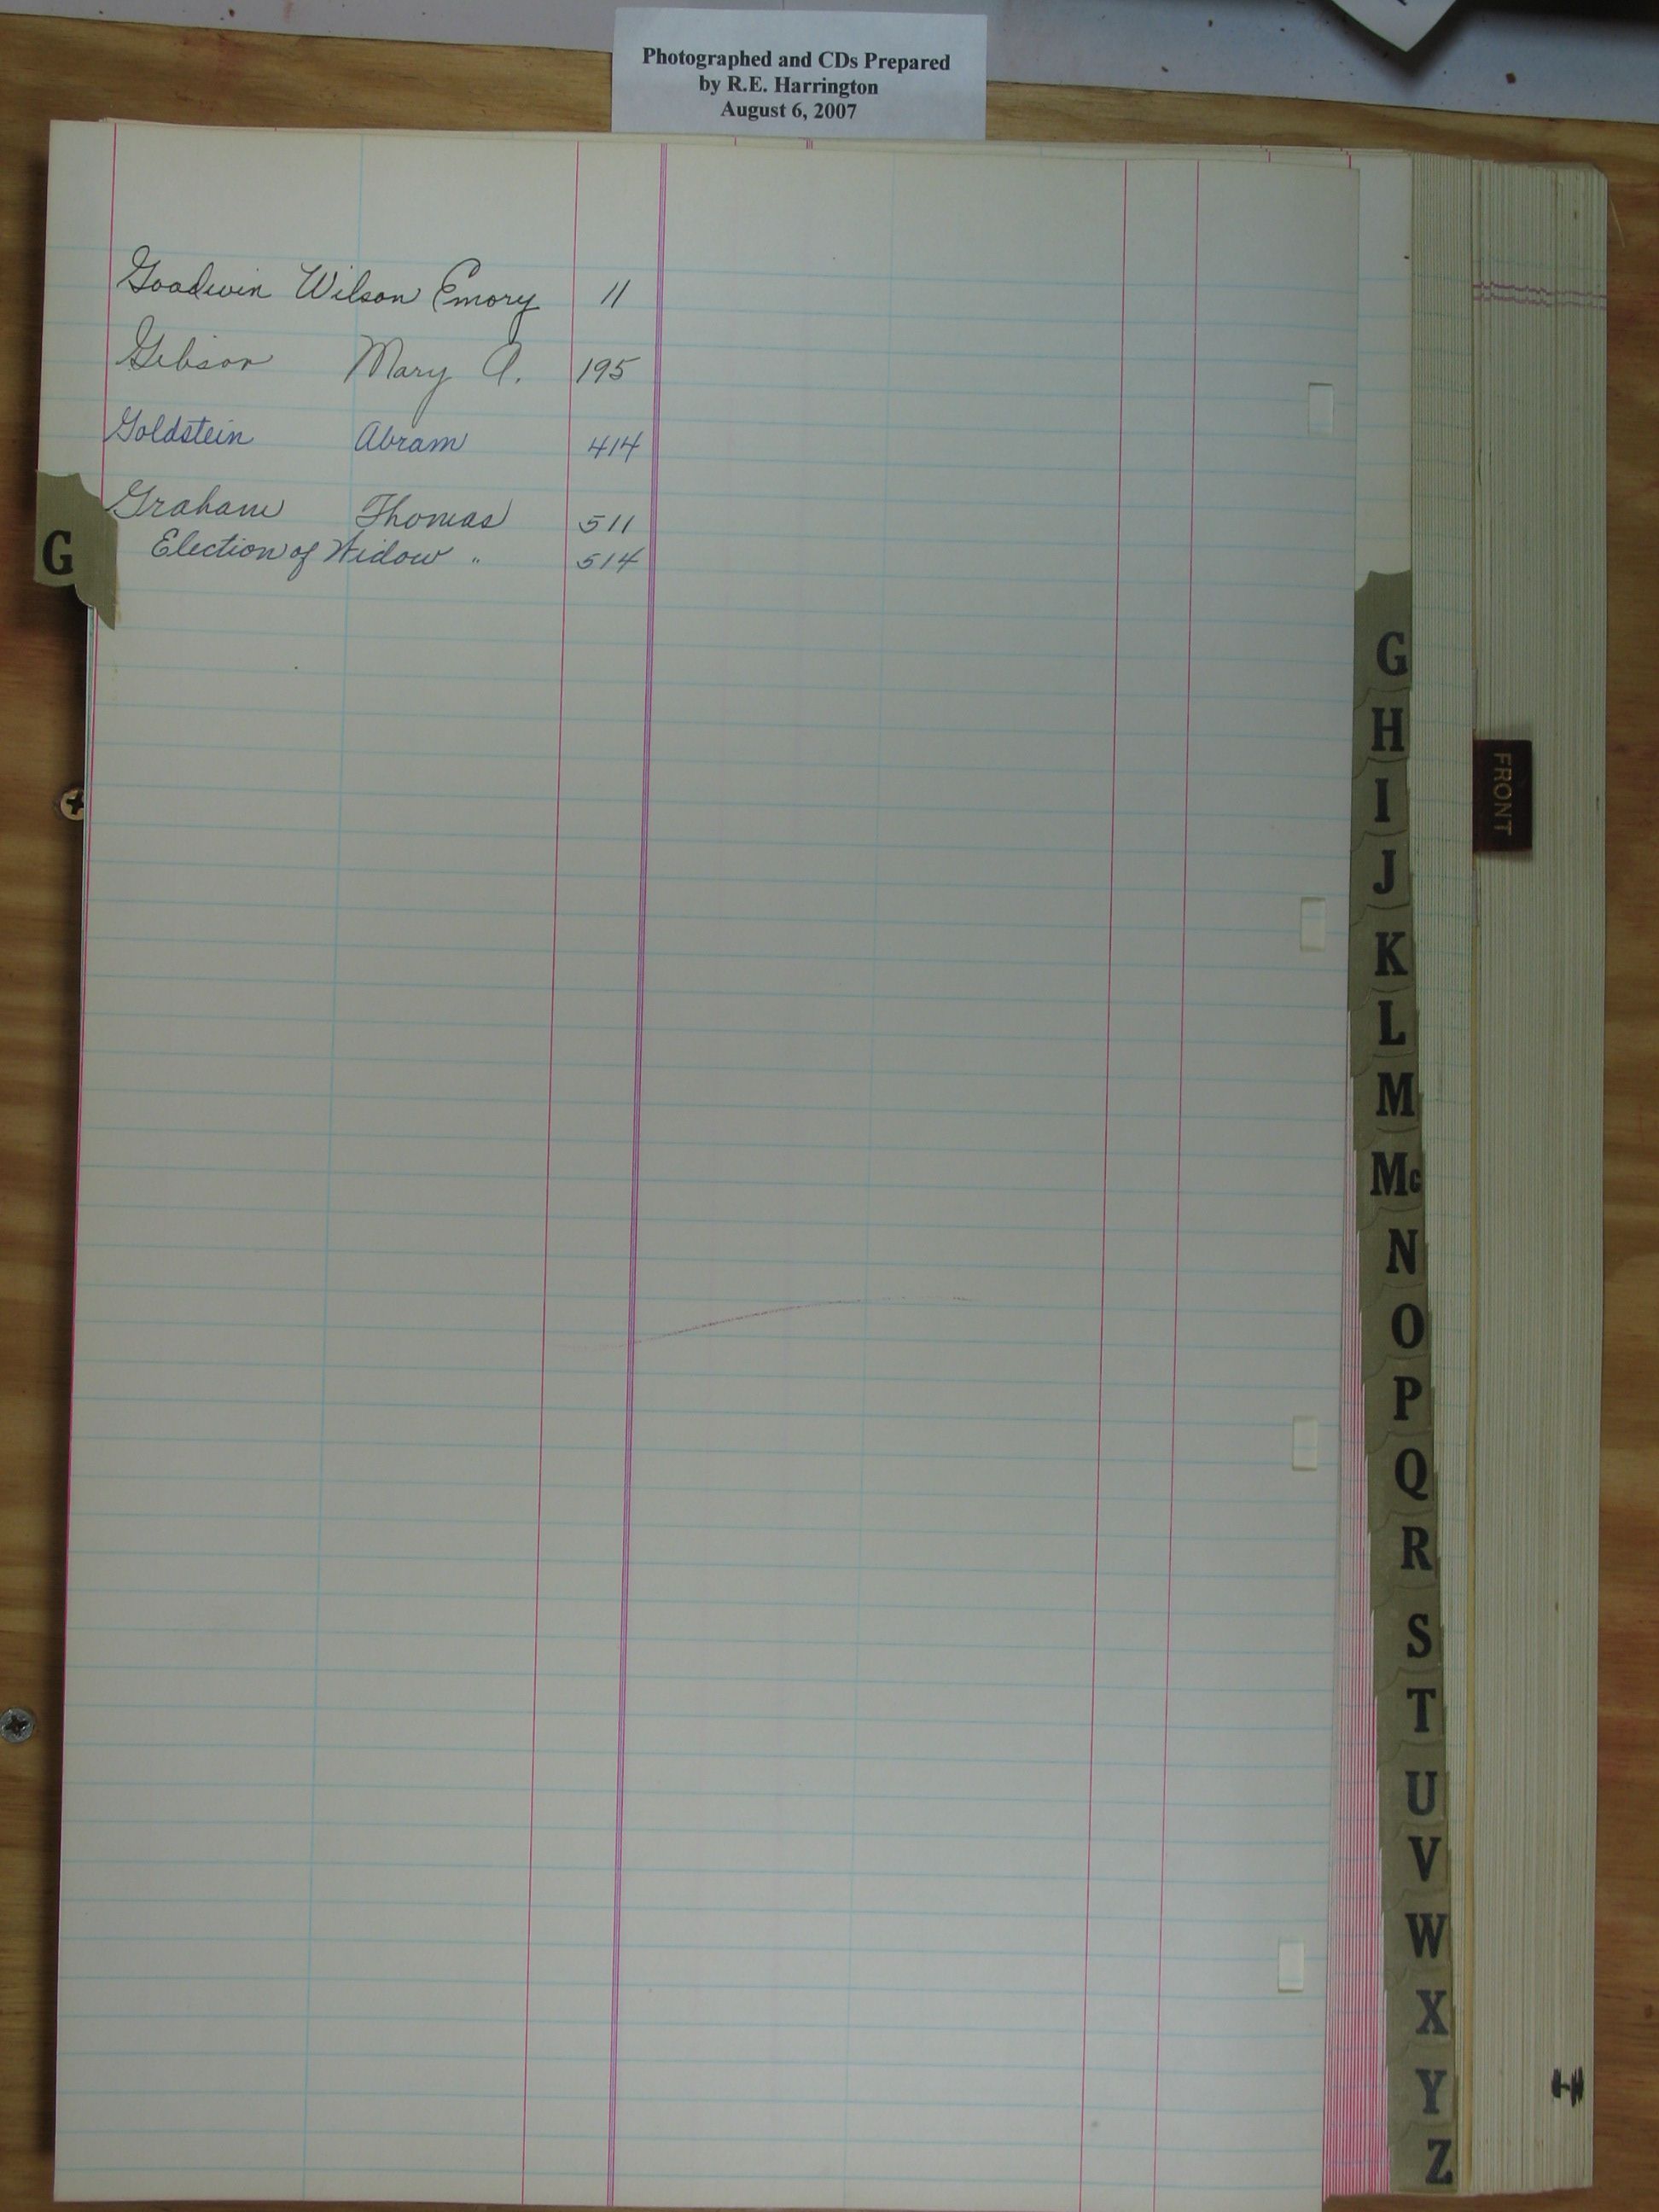 Photographed and CDs Prepared
by R.E. Harrington
August 6, 2007
Goodwin Wilson Emory 11
Gibson Mary A. 195
Goldstein Abram 414
Graham Thomas 511
Election of Widow " 514
G
G
H
I
J
K
L
M
Mc
N
O
P
Q
R
S
T
U
V
W
X
Y
Z
FRONT